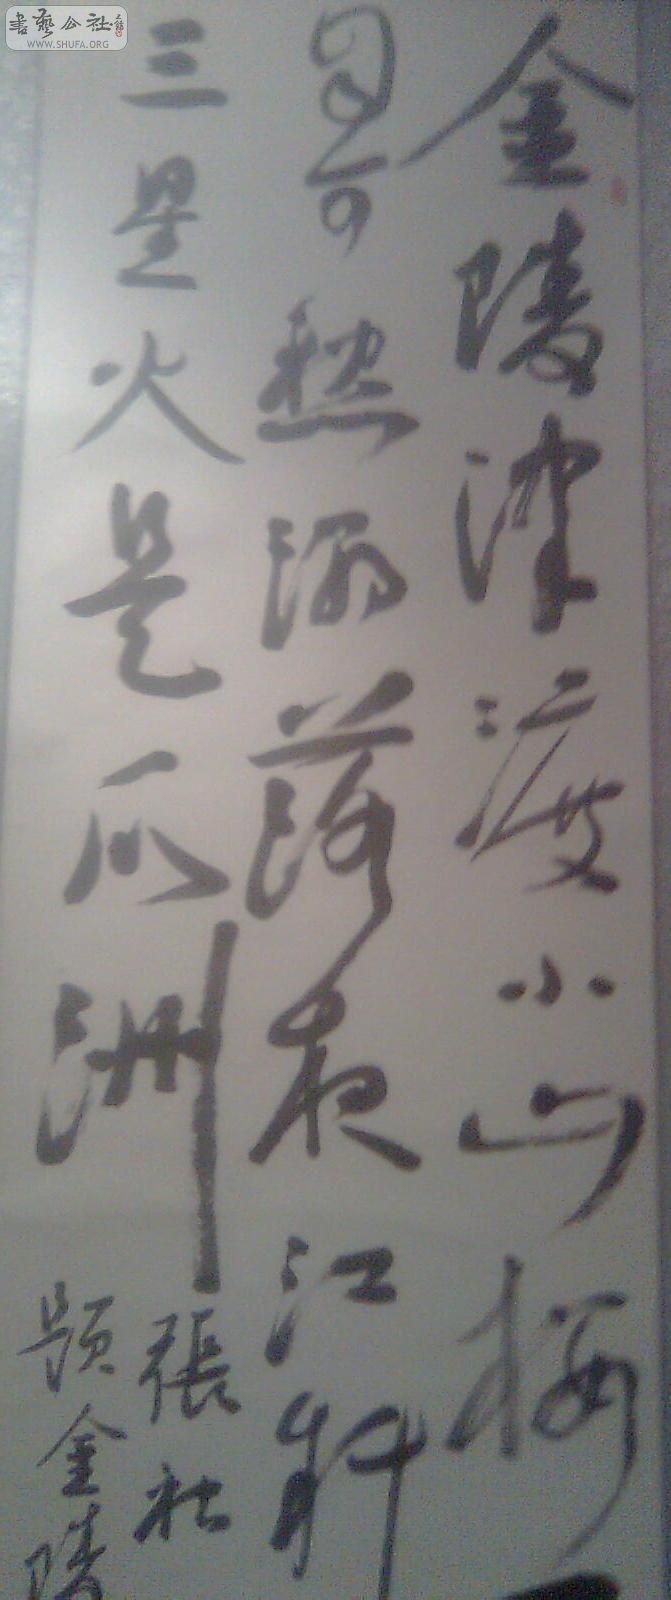 書藝公社
WWW.SHUFA.ORG
金陵津渡小山楼一
自可愁潮落夜江斜
三星火是瓜洲
張祜
题金陵